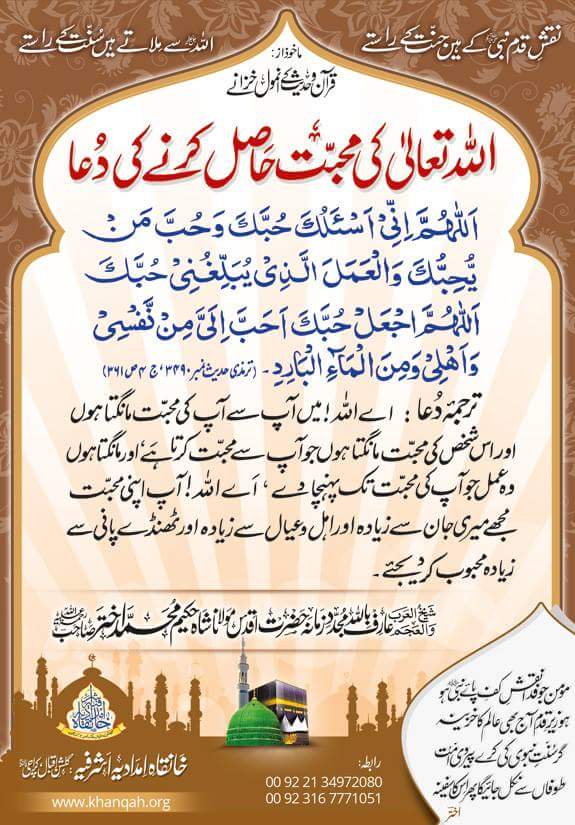 نقشِ قدم نبی ﷺ کے ہیں جنت کے راستے
اللہ سے ملاتے ہیں سنت کے راستے
ماخوذ از:
قرآن و حدیث کے انمول خزانے
اللہ تعالیٰ کی محبت حاصل کرنے کی دُعا
اَللّٰهُمَّ اِنِّیْ اَسْئَلُكَ حُبَّكَ وَحُبَّ مَنْ
یُّحِبُّكَ وَالْعَمَلَ الَّذِیْ یُبَلِّغُنِیْ حُبَّكَ
اَللّٰهُمَّ اجْعَلْ حُبَّكَ اَحَبَّ اِلَیَّ مِنْ نَّفْسِیْ
وَاَهْلِیْ وَمِنَ الْمَآءِ الْبَارِدِ۔ (ترمذی حدیث نمبر ۳۴۹۰، ج ۴ ص ۳۶۱)
ترجمۂ دُعا : اے اللہ! میں آپ سے آپ کی محبت مانگتا ہوں
اور اس شخص کی محبت مانگتا ہوں جو آپ سے محبت کرتا ہے، اور مانگتا ہوں
وہ عمل جو آپ کی محبت تک پہنچا دے، اے اللہ! آپ اپنی محبت
مجھے میری جان سے زیادہ اور اہل و عیال سے زیادہ اور ٹھنڈے پانی سے
زیادہ محبوب کر دیجئے۔
شیخ العرب والعجم عارف باللہ مجدد زمانہ حضرت اقدس مولانا شاہ حکیم محمد اختر صاحب
مؤمن جو فدا نقشِ کفِ پائے نبی ﷺ ہو
ہو زیرِ قدم آج بھی عالم کا خزینہ
گر سنتِ نبوی کی کرے پیروی امت
طوفاں سے نکل جائیگا پھر اس کا سفینہ
اختر
خانقاہ امدادیہ اشرفیہ: گلشن اقبال، کراچی
www.khanqah.org
رابطہ:
00 92 21 34972080
00 92 316 7771051